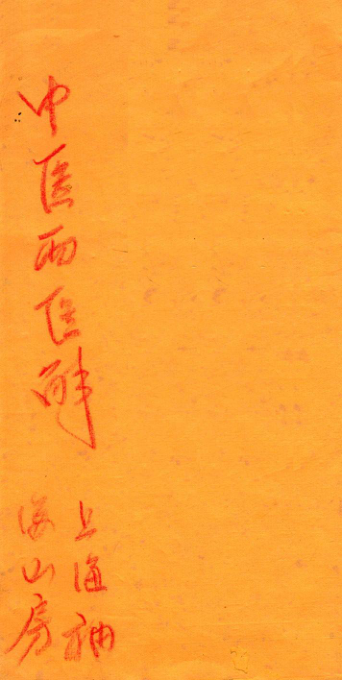 中医西医解
上海袖
海山房